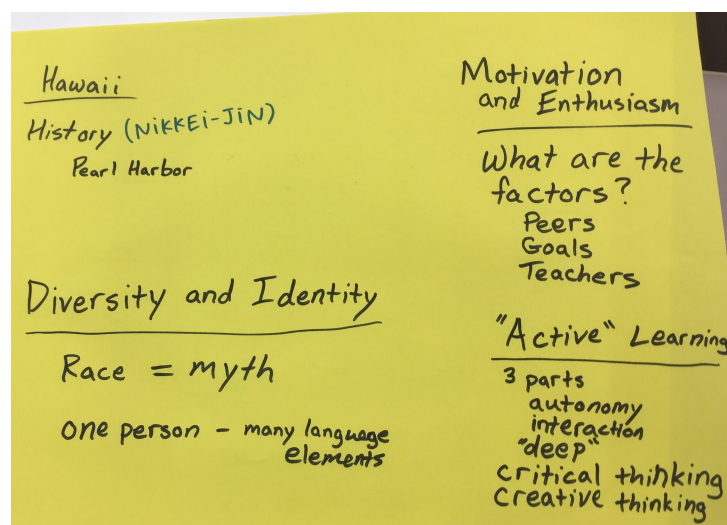 Hawaii
History (NiKKEi-JiN)
Pearl Harbor
Diversity and Identity
Race = myth
one person - many language
elements
Motivation
and Enthusiasm
What are the
factors?
Peers
Goals
Teachers
"Active" Learning
3 parts
autonomy
interaction
"deep"
critical thinking
creative thinking